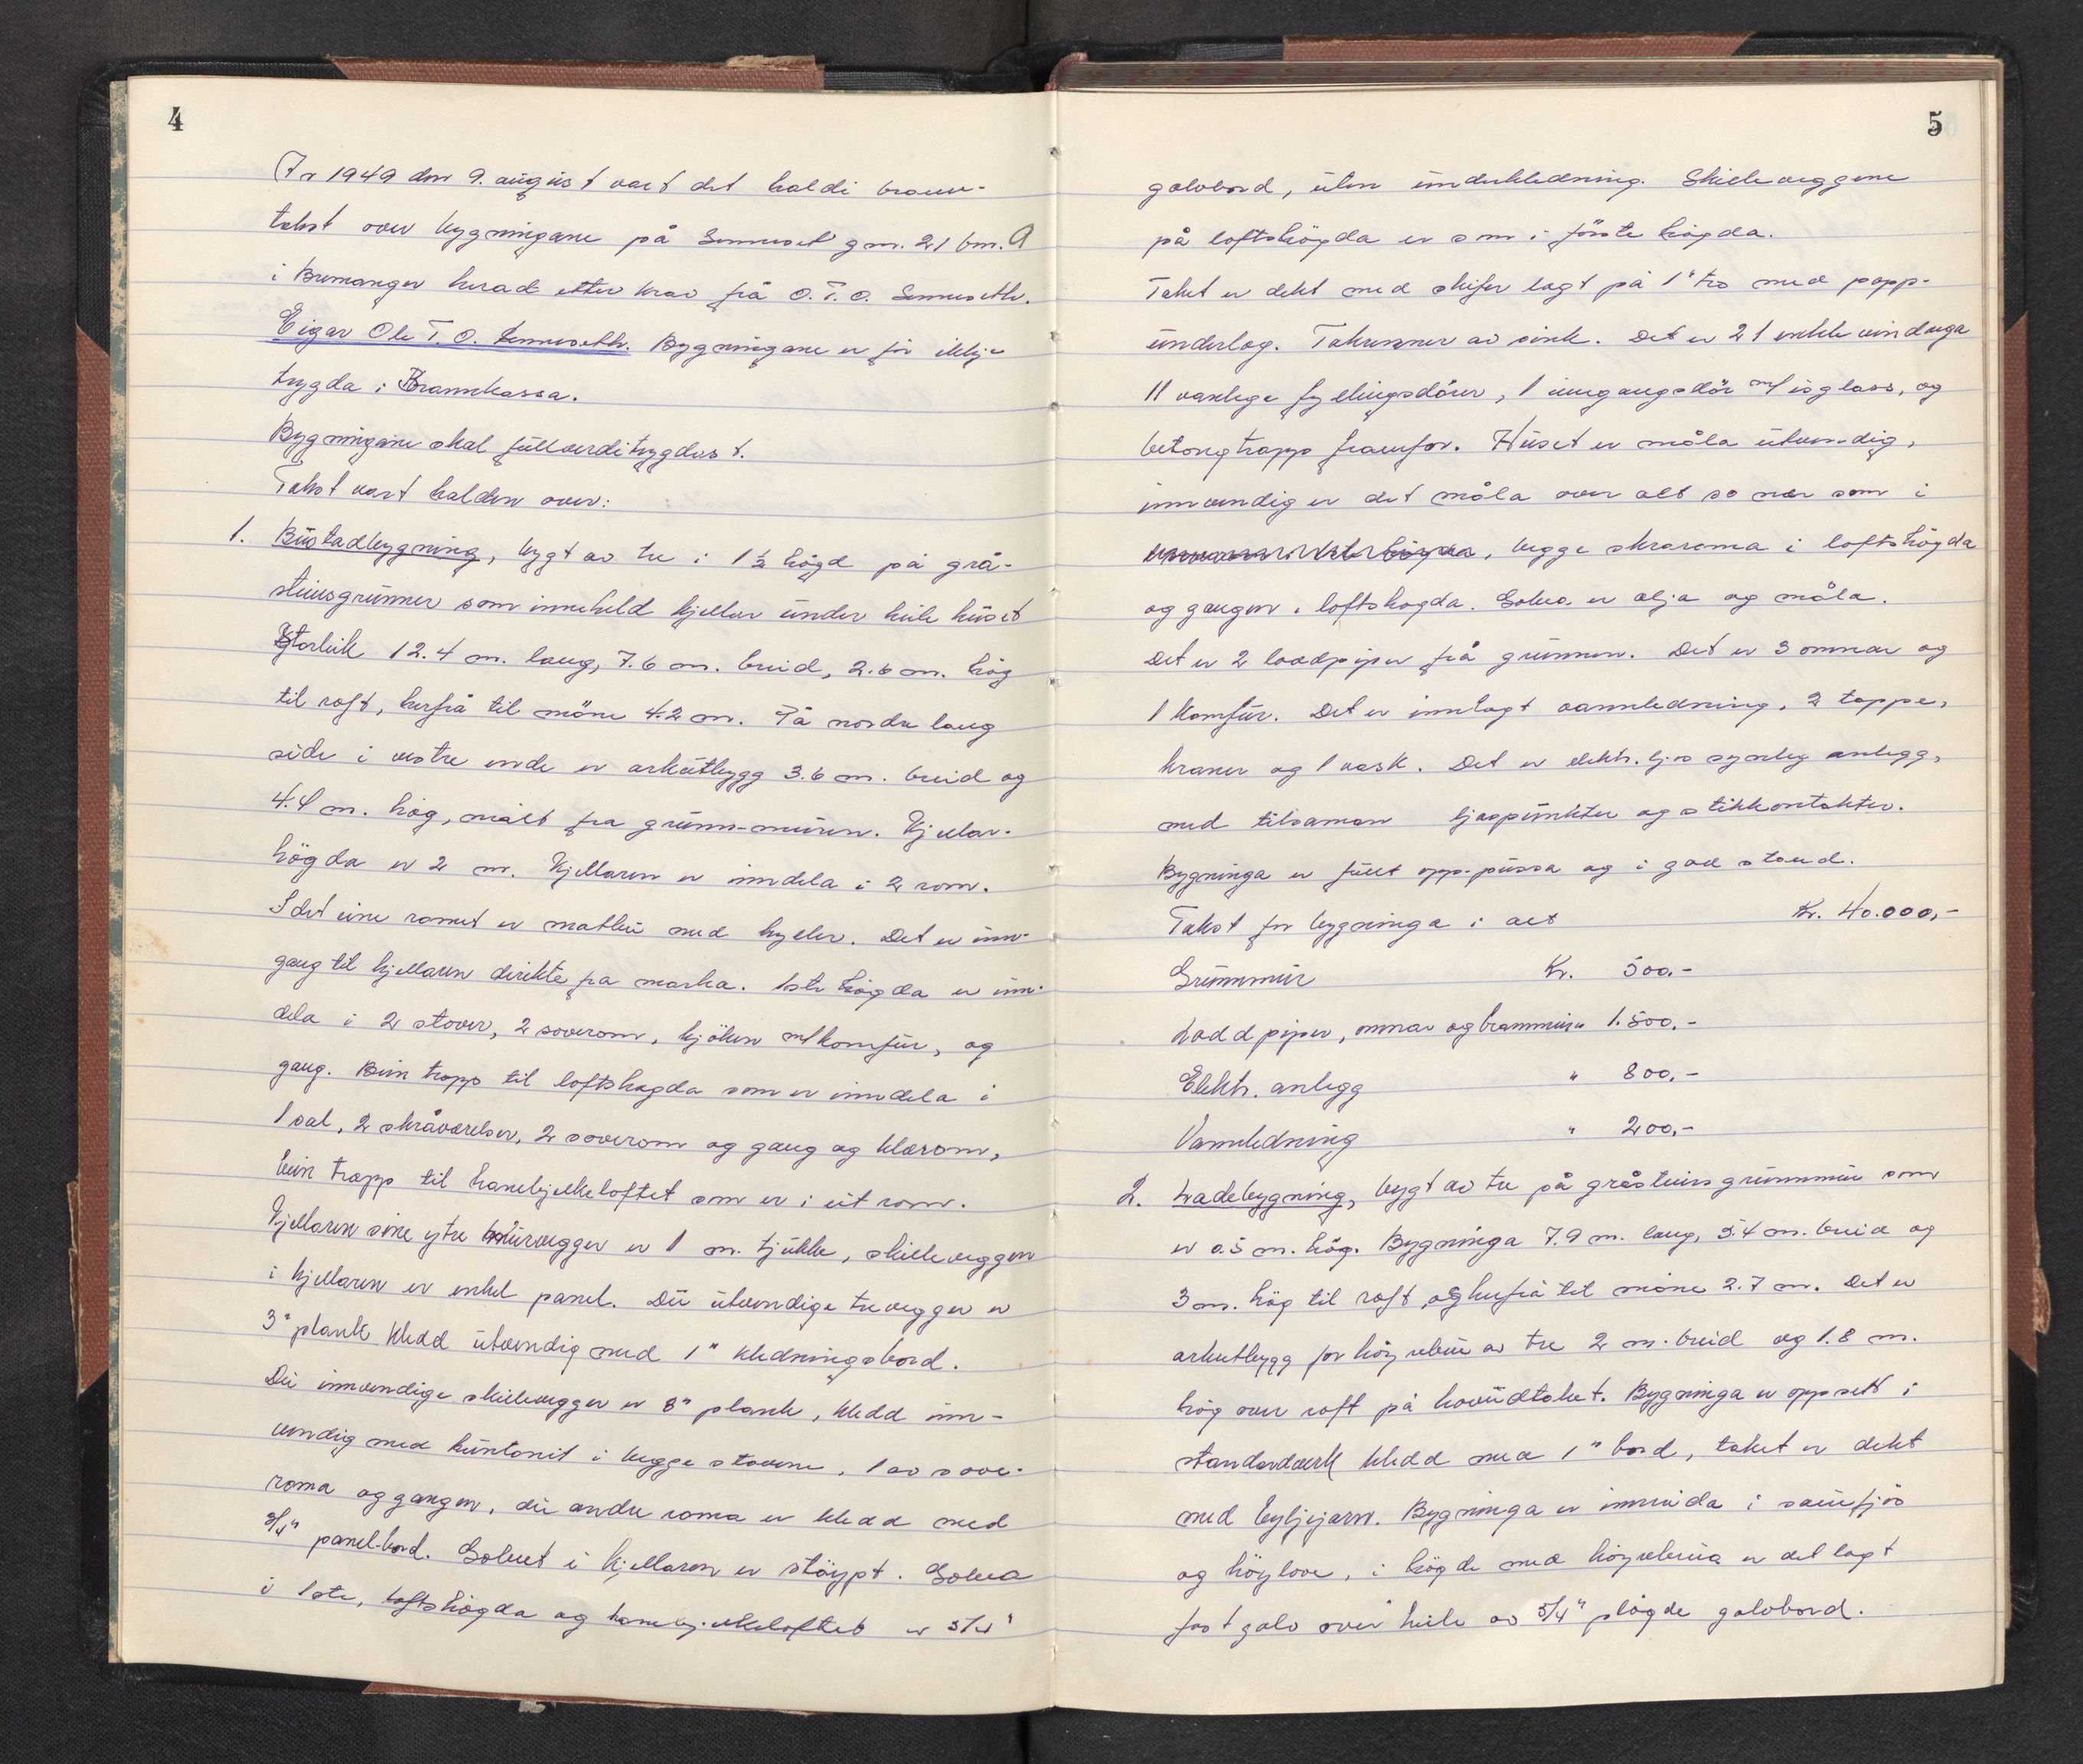 4
År 1949 den 9. august vart det haldi brann-
takst over bygningane på Senneset gnr. 21 bnr. 9
i Bremanger herad etter krav frå O. T. O. Senneseth.
Eigar Ole T. O. Senneseth. Bygningane er før ikkje
trygda i Brannkassa.
Bygningane skal fullverditrygdast.
Takst vart halden over:
1. Bustadbygning, bygt av tre i 1½ högd på grå-
steinsgrunnmur som inneheld kjellar under heile huset
Storleik 12.4 m. lang, 7.6 m. breid, 2.6 m. hög
til raft, herfrå til möne 4.2 m. På nordre lang
side i vestre ende er arkutbygg 3.6 m. breid og
4.4 m. hög, målt fra grunn-muren. Kjellar-
högda er 2 m. Kjellaren er inndela i 2 rom.
I det eine romet er matbu med hyller. Det er inn-
gang til kjellaren direkte fra marka. 1ste högda er inn-
dela i 2 stover, 2 soverom, kjöken m/komfur, og
gang. Ein trapp til loftshögda som er inndela i
1 sal, 2 skråværelser, 2 soverom og gang og klesrom,
ein trapp til hanebjelkeloftet som er i eit rom.
Kjellaren sine ytre murvegger er 1 m. tjukke, skilleveggen
i kjellaren er enkel panel. Dei utvendige trevegger er
3" plank kledd utvendig med 1" kledningsbord.
Dei innvendige skillevegger er 3" plank, kledd inn-
vendig med huntonit i begge stovene, 1 av sove-
roma og gangen, dei andre roma er kledd med
3/4" panel-bord. Golvet i kjellaren er støypt. Golva
i 1ste, loftshögda og hanebjelkeloftet er 5/4"
5
golvbord, uten underkledning. Skilleveggene
på loftshögda er som i förste högda.
Taket er dekt med skifer lagt på 1" tro med papp-
underlag. Takrenner av sink. Det er 21 enkle vindauga
11 vanlege fyllingsdörer, 1 inngangsdör m/isglass, og
betongtrapp framfor. Huset er måla utvendig,
innvendig er det måla over alt so nær som i
, begge skraroma i loftshögda
og gangen i loftshögda. Golva er olja og måla.
Det er 2 loddpiper frå grunnen. Det er 3 omnar og
1 komfur. Det er innlagt vannledning, 2 tappe-
kraner og 1 vask. Det er elektr. ljos synleg anlegg,
med tilsaman ljospunkter og stikkontakter.
Bygninga er fullt opp-pussa og i god stand.
Takst for bygninga i alt Kr. 40.000,-
Grunnmur Kr. 500.-
Loddpiper, omnar og brannmur " 1.500.-
Elektr. anlegg " 800,-
Vannledning " 200,-
2. Ladebygning, bygt av tre på gråsteins grunnmur som
er 0.5 m. hög. Bygninga 7.9 m. lang, 5.4 m. breid og
3 m. hög til raft, og herfrå til möne 2.7 m. Det er
arkutbygg for av tre 2 m. breid og 1.8 m.
hög over raft på hovudtaket. Bygninga er oppsett i
standardverk kledd med 1" bord, taket er dekt
med bylgjejarn. Bygninga er innreida i sauefjos
og höylove, i högde med er det lagt
fast golv over heile av 5/4" plögde golvbord.